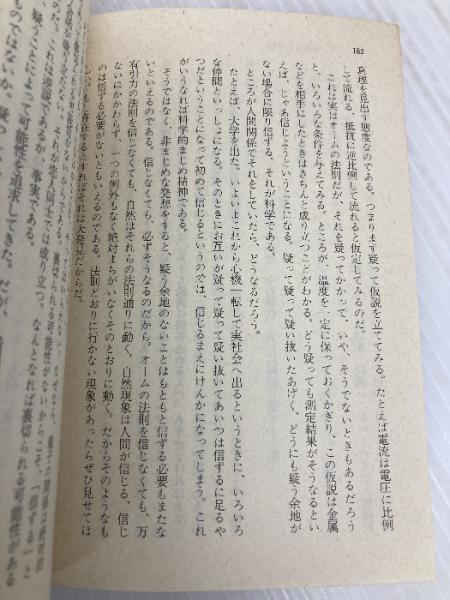 182
真理を見出す態度なのである。つまりまず疑って仮説を立ててみる。たとえば電流は電圧に比例
して流れる、抵抗に逆比例して流れると仮定してみるのだ。
これは実はオームの法則だが、それを疑ってかかって、いや、そうでないときもあるだろう
と、いろいろな条件を与えてみる。ところが、温度を一定に保っておくかぎり、この仮説は金属
などを相手にしたときはきちんと成り立つことがわかる。どう疑っても測定結果がそうなるとい
えば、じゃあ信じようということになる。疑って疑って疑い抜いたあげく、どうにも疑う余地が
ない場合に限り信ずる、それが科学である。
ところが人間関係でそれをしていたら、どうなるだろう。
たとえば、大学を出た。いよいよこれから心機一転して実社会へ出るというときに、いろいろ
な仲間といっしょになる。そのときにお互いが疑って疑って疑い抜いてあいつは信ずるに足るや
つだということになって初めて信じるというのでは、信じるまえにけんかになってしまう。これ
がいうなれば科学的まじめ精神である。
そうではなくて、非まじめな発想をすると、疑う余地のないことはもともと信ずる必要もまたな
いといえるのである。信じなくても、必ずそうなるのだから。オームの法則を信じなくても、万
有引力の法則を信じなくても、自然はそれらの法則通りに動く。自然現象は人間が信じる、信じ
ないにかかわらず、一つの例外もなく絶対まちがいなくそのとおりに動く。だからそのようなも
のは信ずる必要がないともいえるのである。法則どおりに行かない現象があったらぜひ見せてほ
しい。もし存在するとすればそれは大発見だからだ。